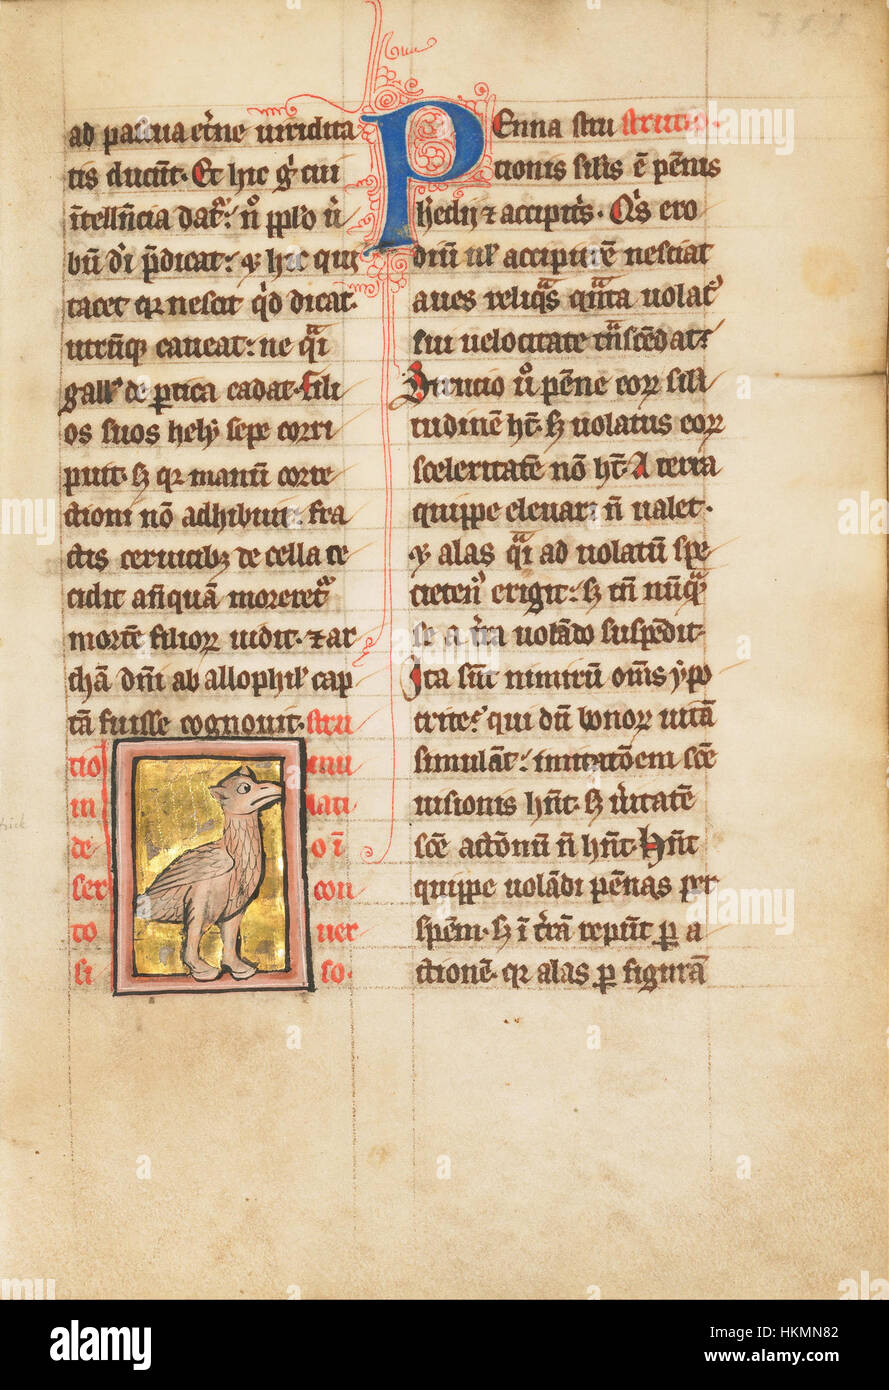 ad pascua et̾ne viridita
tis ducūt. Et hic gͥ cui
ītelln̄cia dat᷑: nō pplo v̾
bū dī p̄dicat: ⁊ hic qui
tacet qꝛ nescit qd̾ dicat
utrūqꝫ caveat: ne qͣsi
gallꝰ de ꝑtica cadat. Fili
os suos hely sepe corri
puit. sꝫ qꝛ manū corre
ctioni nō adhibuit. fra
ctis cervicibꝫ de cella ce
cidit añquā moreretᷣ
mortē filioꝝ audit. ⁊ ar
chā dn̄i ab allophilꝭ cap
tā fuisse cognovit. stru
tio imi
in tati
de o ī
ser con
to ver
si so.
PEnna stru strutio.
tionis silis ē pēnis
hedii ⁊ accipitͥs. Qͥs ero
dium ul᷑ accipitrē nesciat
aues reliqͣs qͣnta uolatꝰ
sui uelocitate tͣnscēdat?
Strucio v̊ pēne eoꝝ sili
tudinē hꝫ. sꝫ uolatus eoꝝ
sceleritatē nō hꝫ. A terra
quippe elevari n̄ valet.
⁊ alas qͣsi ad uolatū spe
cietenꝰ erigit: sꝫ tn̄ nūqͣ
se a t̾ra uolādo suspēdit
Ita sūt nimirū om̄s ypo
crite. qui dū bonoꝝ uitā
simulāt: imitatōem scē
uisionis hn̄t. sꝫ v̾itatē
scē actōnū n̄ hn̄t. Hn̄t
quippe uolādi pēnas per
spēm. sꝫ ī t̾ra reptūt ꝑ a
ctionē. qꝛ alas ꝑ figurā
alamy
Image ID: HKMN82
www.alamy.com